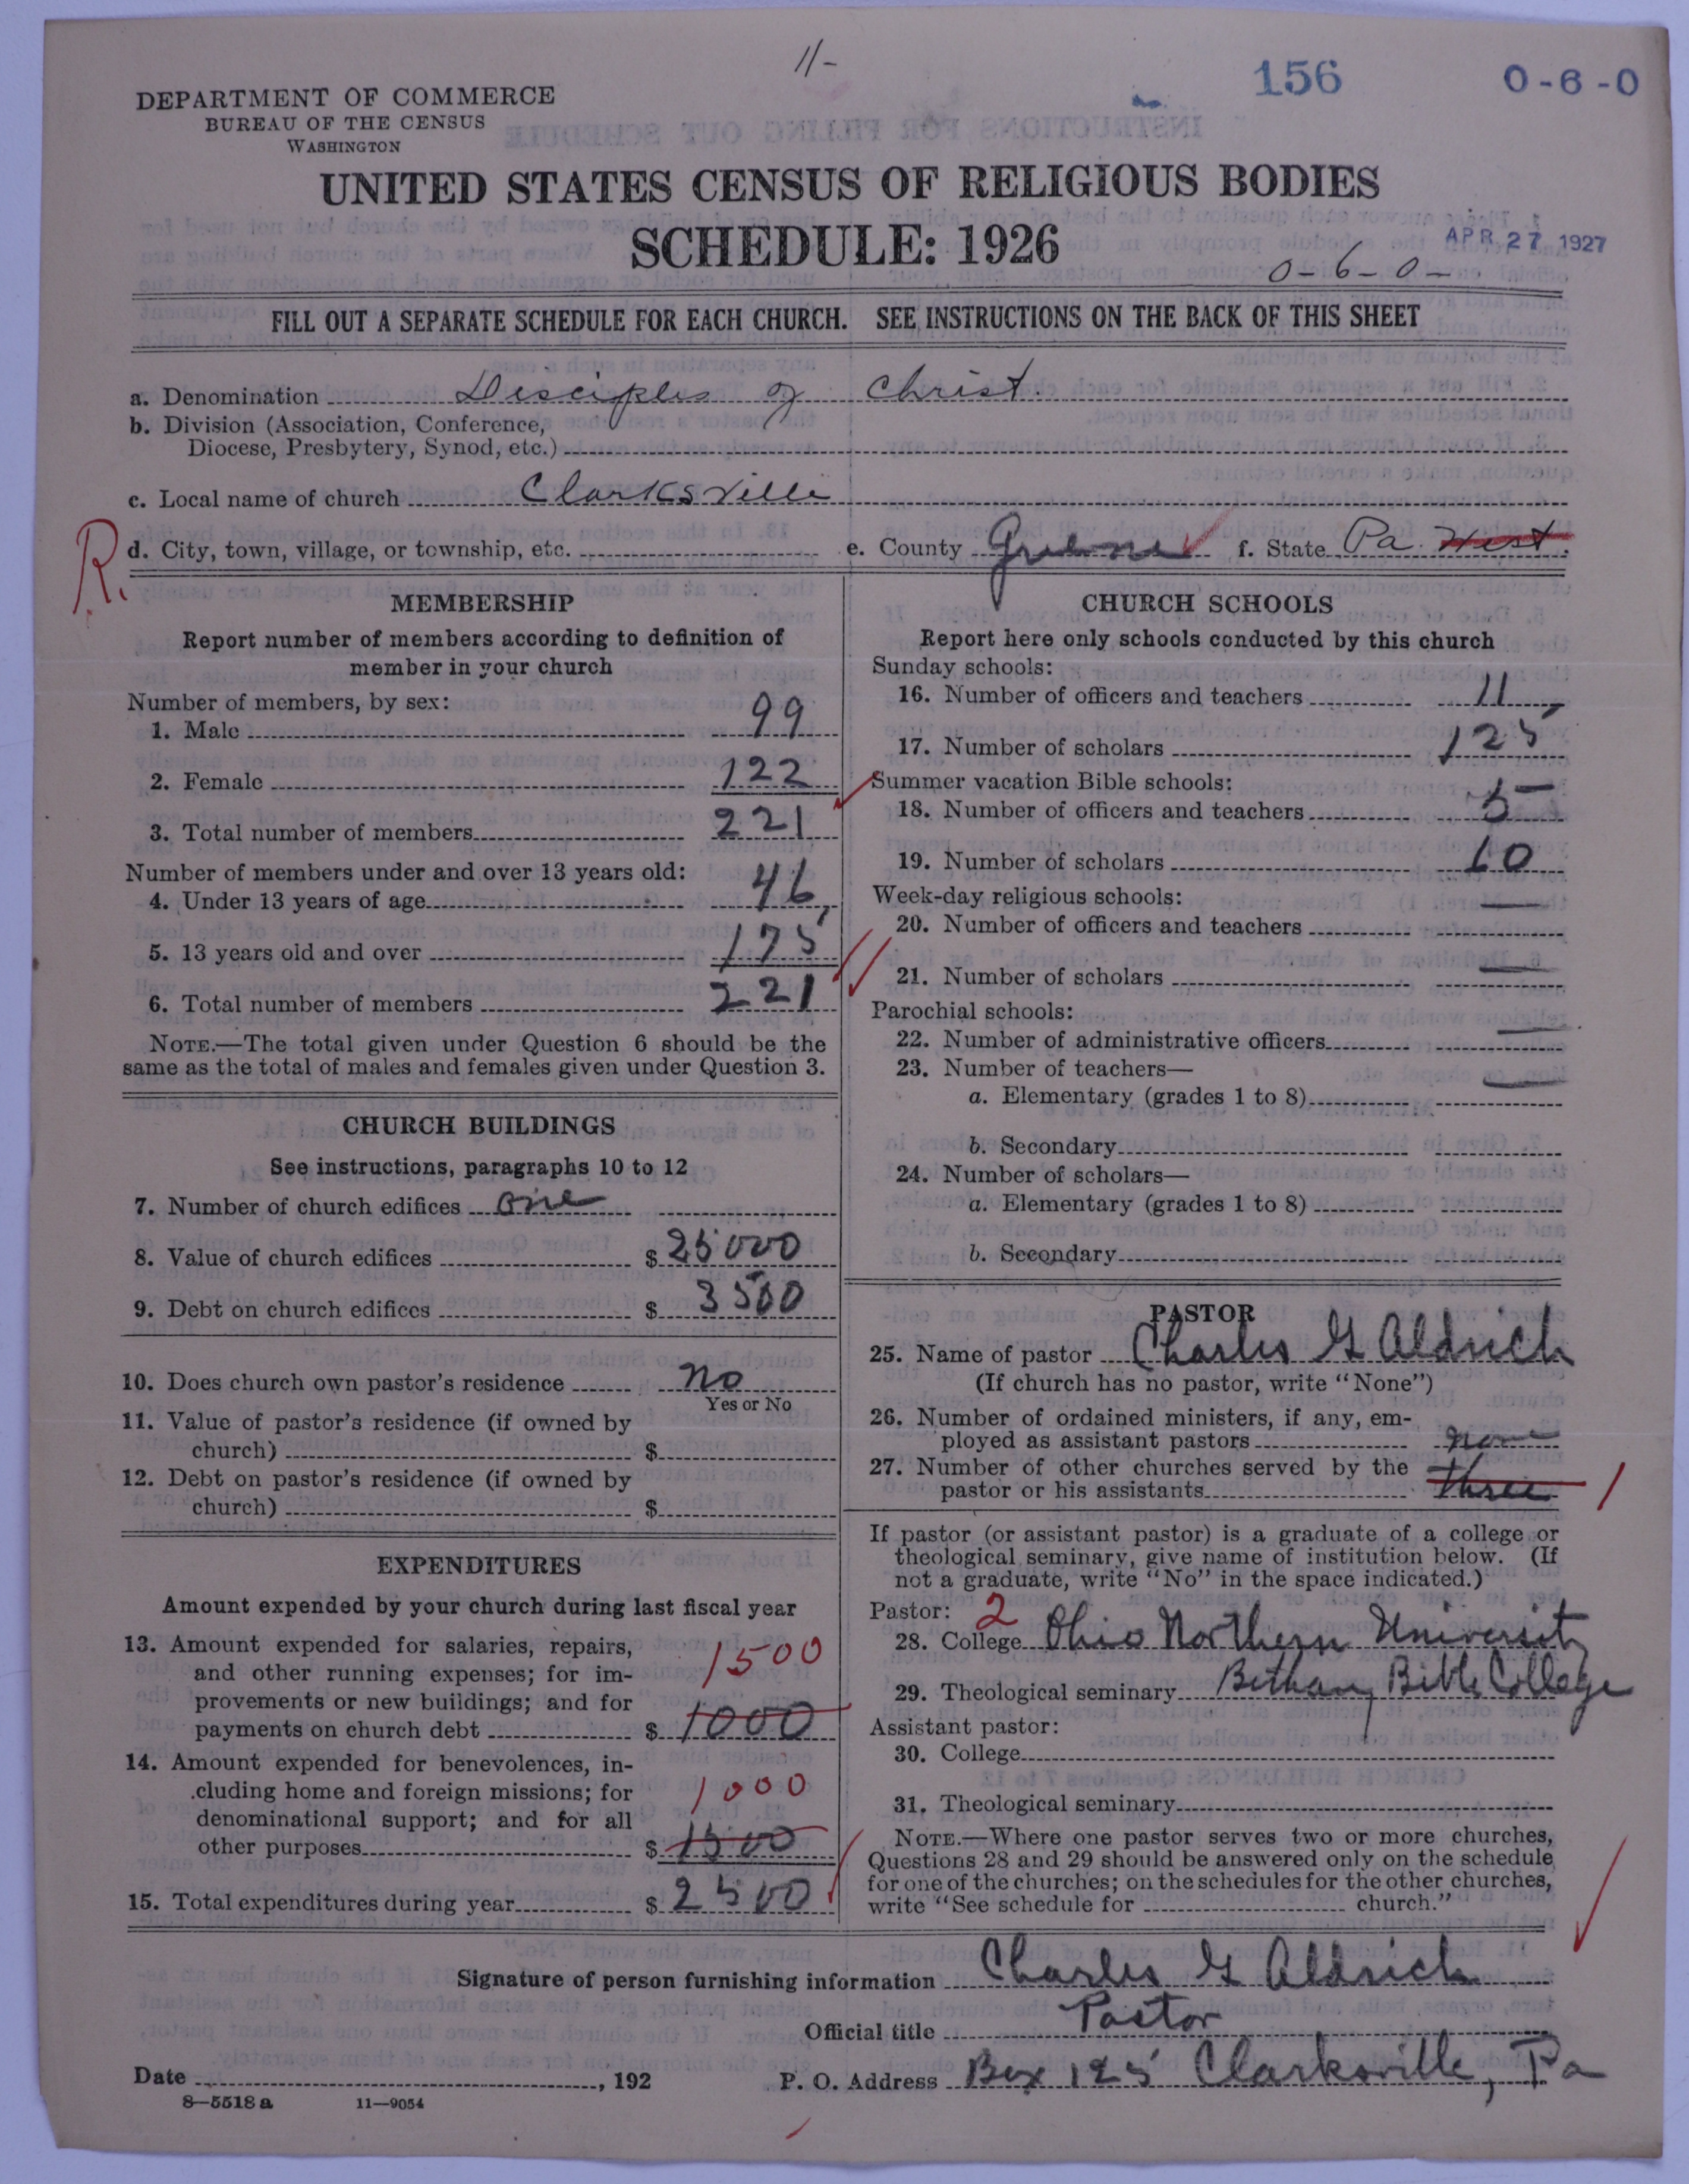 11-
156
0-6-0
DEPARTMENT OF COMMERCE
BUREAU OF THE CENSUS
WASHINGTON
UNITED STATES CENSUS OF RELIGIOUS BODIES
SCHEDULE: 1926
APR 27 1927
0-6-0-
FILL OUT A SEPARATE SCHEDULE FOR EACH CHURCH. SEE INSTRUCTIONS ON THE BACK OF THIS SHEET
a. Denomination Disciples of Christ.
b. Division (Association, Conference,
Diocese, Presbytery, Synod, etc.)
c. Local name of church Clarksville
R.
d. City, town, village, or township, etc. e. County Greene f. State Pa. West.
MEMBERSHIP
Report number of members according to definition of
member in your church
Number of members, by sex:
1. Male 99
2. Female 122
3. Total number of members 221
Number of members under and over 13 years old:
4. Under 13 years of age 46
5. 13 years old and over 175
6. Total number of members 221
NOTE.—The total given under Question 6 should be the
same as the total of males and females given under Question 3.
CHURCH BUILDINGS
See instructions, paragraphs 10 to 12
7. Number of church edifices one
8. Value of church edifices $ 25000
9. Debt on church edifices $ 3500
10. Does church own pastor's residence no
Yes or No
11. Value of pastor's residence (if owned by
church) $
12. Debt on pastor's residence (if owned by
church) $
EXPENDITURES
Amount expended by your church during last fiscal year
13. Amount expended for salaries, repairs,
and other running expenses; for im- 1500
provements or new buildings; and for
payments on church debt $ 1000
14. Amount expended for benevolences, in-
cluding home and foreign missions; for 1000
denominational support; and for all
other purposes $ 1500
15. Total expenditures during year $ 2500
CHURCH SCHOOLS
Report here only schools conducted by this church
Sunday schools:
16. Number of officers and teachers 11
17. Number of scholars 125
Summer vacation Bible schools:
18. Number of officers and teachers 5
19. Number of scholars 60
Week-day religious schools:
20. Number of officers and teachers —
21. Number of scholars —
Parochial schools:
22. Number of administrative officers —
23. Number of teachers—
a. Elementary (grades 1 to 8) —
b. Secondary
24. Number of scholars—
a. Elementary (grades 1 to 8)
b. Secondary
PASTOR
25. Name of pastor Charles G Aldrich
(If church has no pastor, write "None")
26. Number of ordained ministers, if any, em-
ployed as assistant pastors none
27. Number of other churches served by the
pastor or his assistants three 1
If pastor (or assistant pastor) is a graduate of a college or
theological seminary, give name of institution below. (If
not a graduate, write "No" in the space indicated.)
Pastor: 2
28. College Ohio Northern University
29. Theological seminary Bethany Bible College
Assistant pastor:
30. College
31. Theological seminary
NOTE.—Where one pastor serves two or more churches,
Questions 28 and 29 should be answered only on the schedule
for one of the churches; on the schedules for the other churches,
write "See schedule for church."
Signature of person furnishing information Charles G Aldrich
Official title Pastor
Date , 192 P. O. Address Box 125 Clarksville, Pa
8—5518 a 11—9054